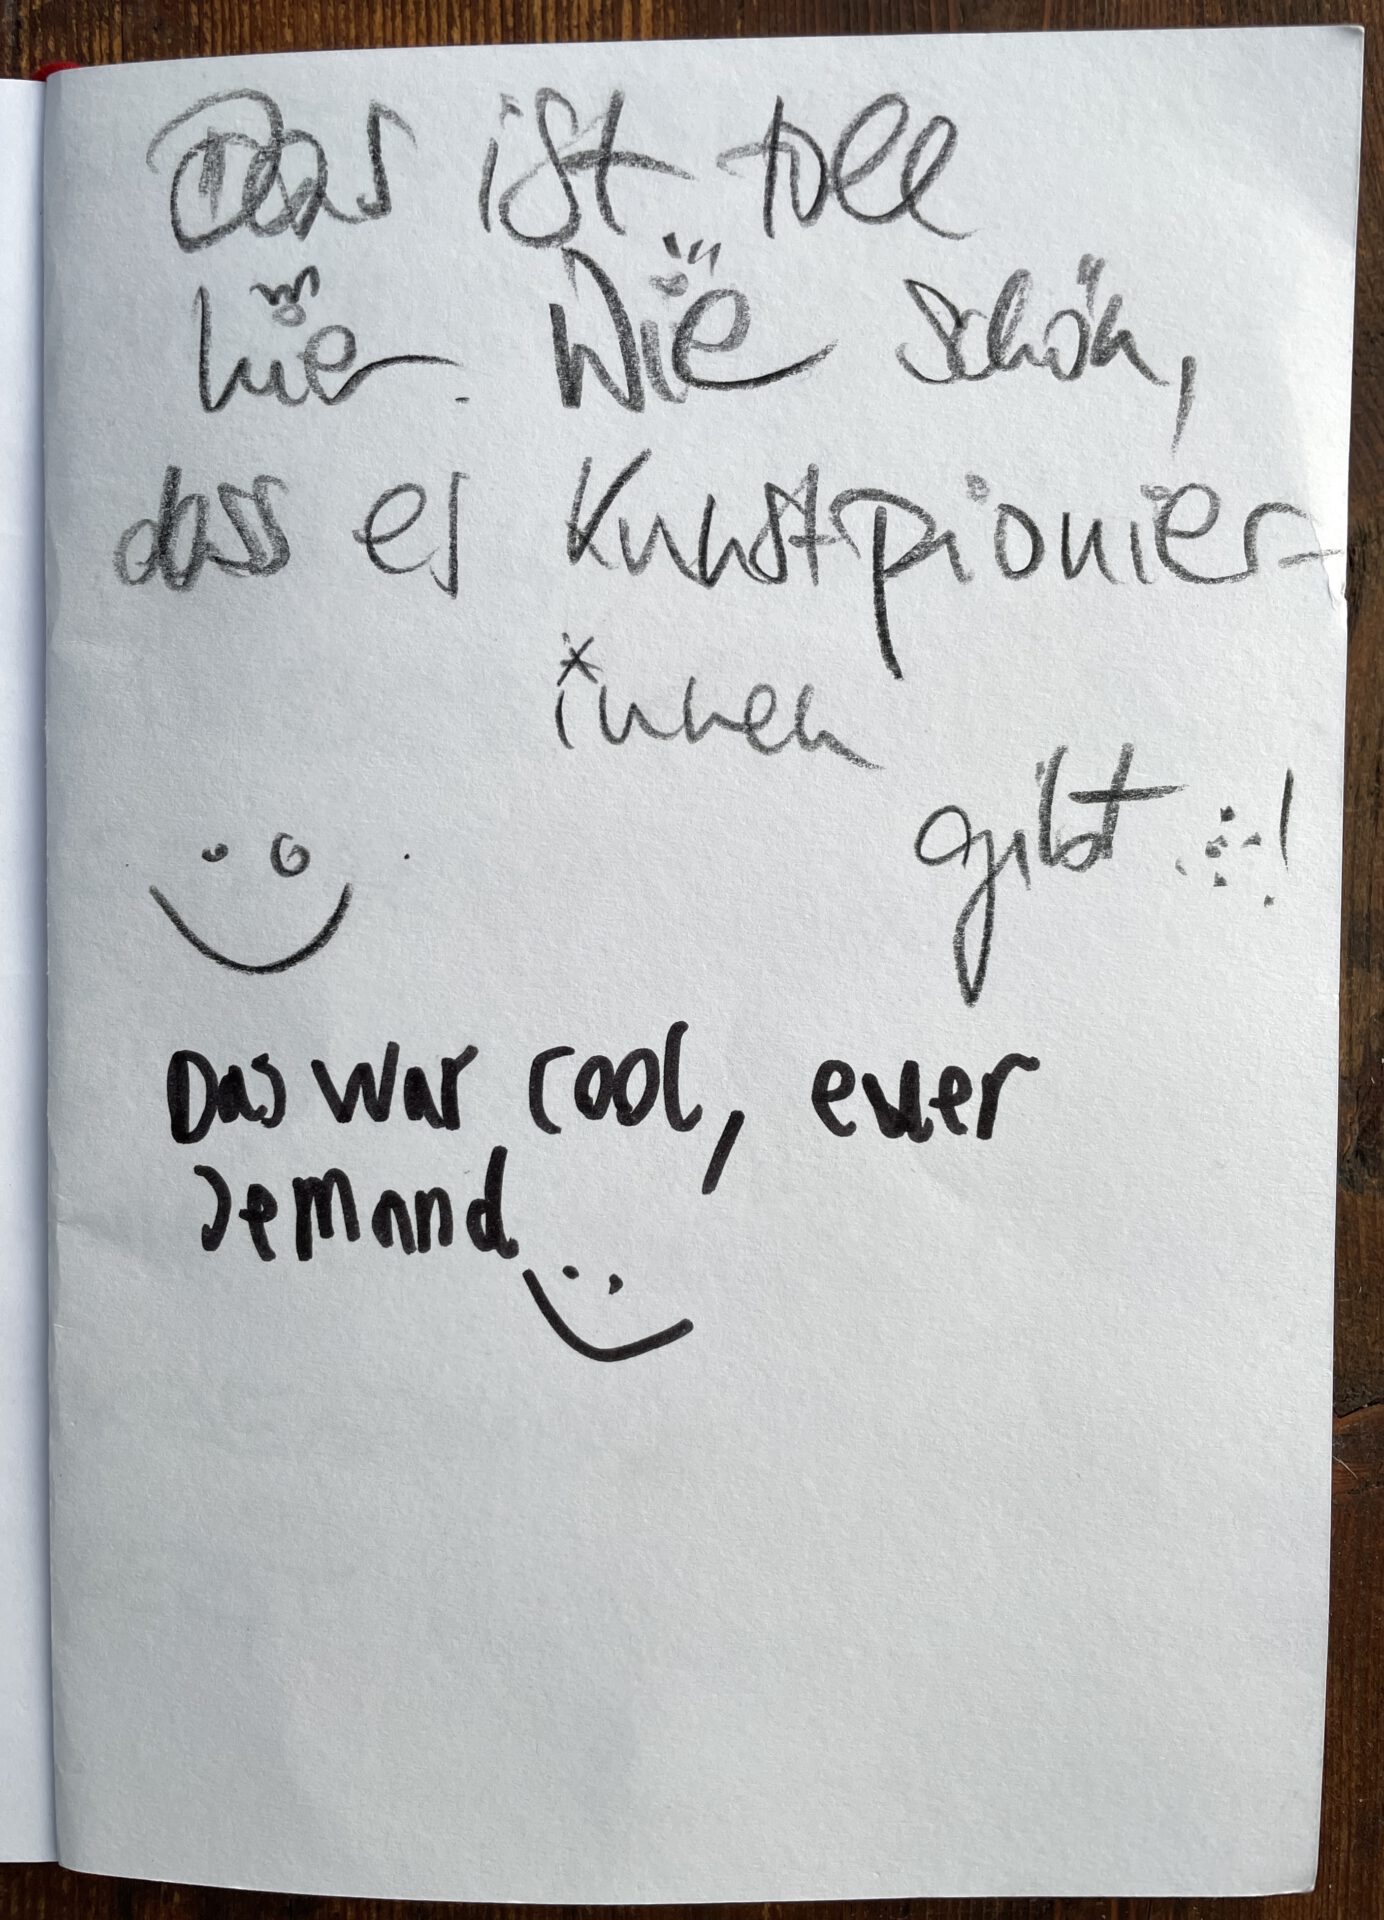 Das ist toll
hier. Wie schön,
dass es Kunstpionier-
innen
gibt !
Das war cool, euer
Jemand